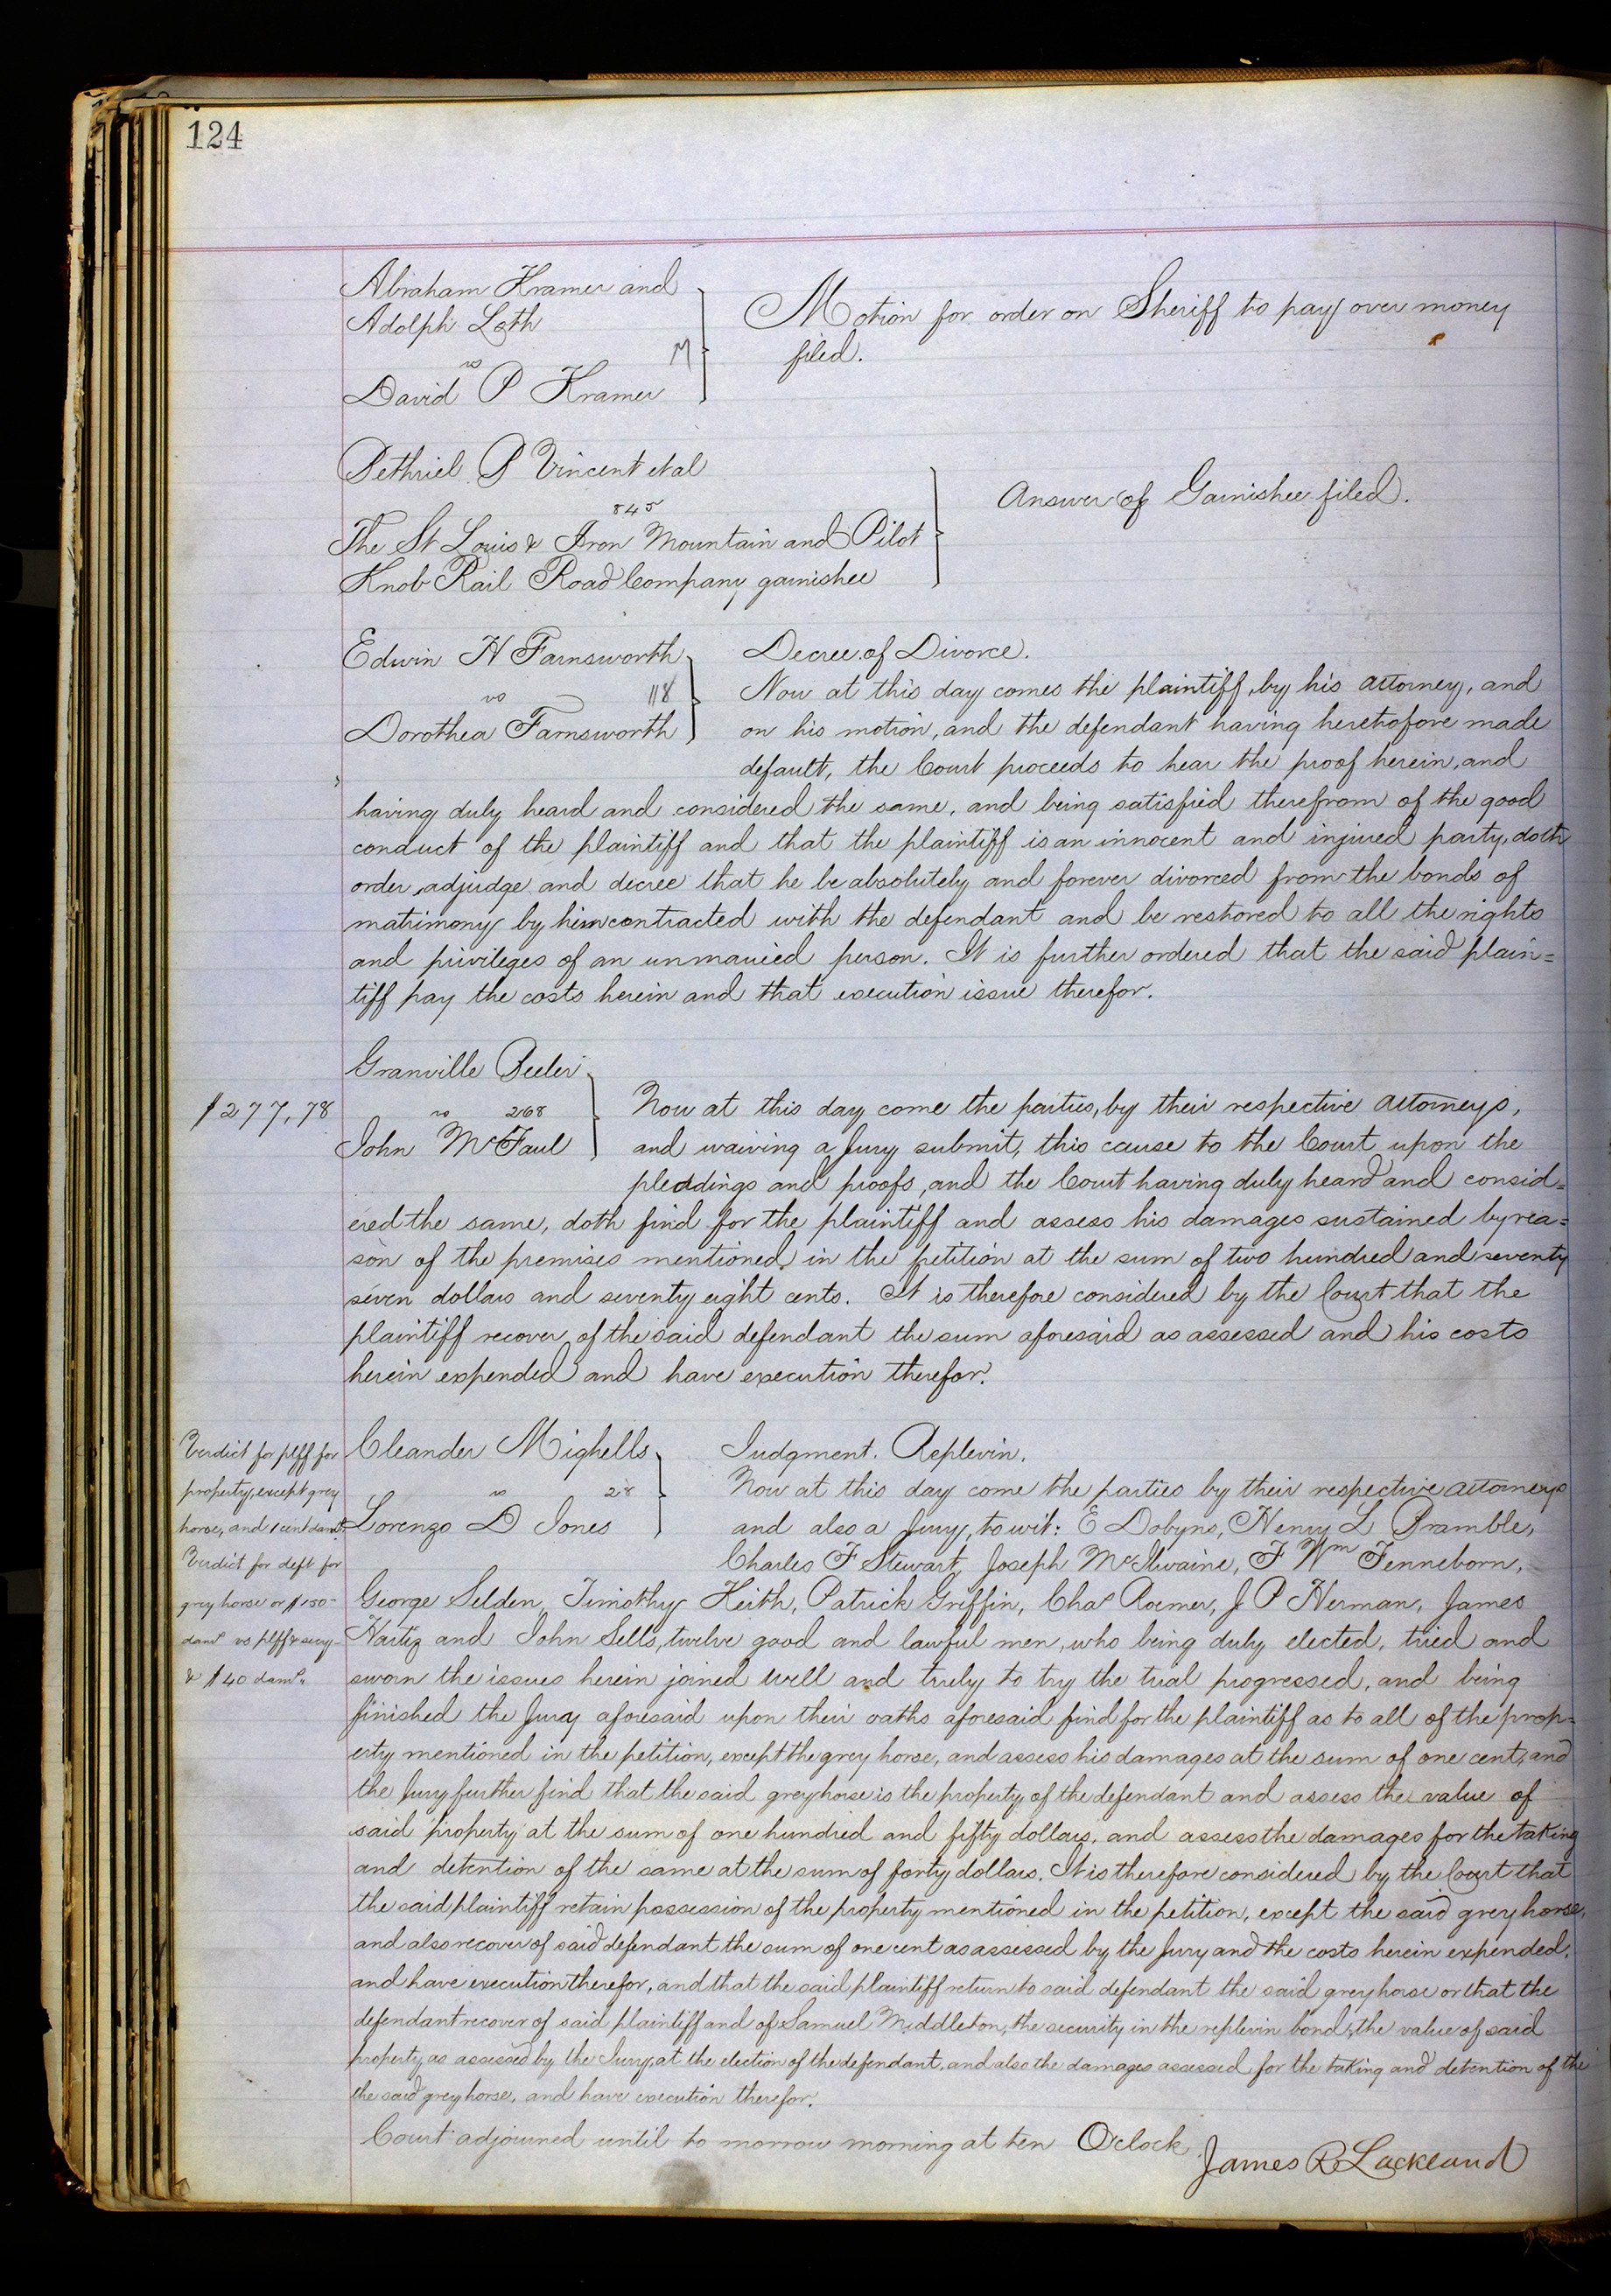 124
Abraham Kramer and
Adolph Loth
vs
M
David P Kramer
Motion for order on Sheriff to pay over money
filed.
Pethriel P Vincent et al
845
The St Louis & Iron Mountain and Pilot
Knob Rail Road Company garnishee
Answer of Garnishee filed.
Edwin H Farnsworth
vs 118
Dorothea Farnsworth
Decree of Divorce.
Now at this day comes the plaintiff, by his attorney, and
on his motion, and the defendant having heretofore made
default, the Court proceeds to hear the proof herein, and
having duly heard and considered the same, and being satisfied therefrom of the good
conduct of the plaintiff and that the plaintiff is an innocent and injured party, doth
order, adjudge and decree that he be absolutely and forever divorced from the bonds of
matrimony by him contracted with the defendant and be restored to all the rights
and privileges of an unmarried person. It is further ordered that the said plain=
tiff pay the costs herein and that execution issue therefor.
Granville Peeler
$277,78
vs 268
John McFaul
Now at this day come the parties, by their respective attorneys,
and waiving a Jury submit, this cause to the Court upon the
pleadings and proofs, and the Court having duly heard and consid=
ered the same, doth find for the plaintiff and assess his damages sustained by rea=
son of the premises mentioned in the petition at the sum of two hundred and seventy
seven dollars and seventy eight cents. It is therefore considered by the Court that the
plaintiff recover of the said defendant the sum aforesaid as assessed and his costs
herein expended and have execution therefor.
Verdict for plff for
property, except grey
horse, and 1 cent dams.
Verdict for deft for
grey horse or $150-
dams vs plff & secy-
& $40 dams.
Cleander Mighells
vs 28
Lorenzo D Jones
Judgment. Replevin.
Now at this day come the parties by their respective attorneys
and also a Jury, to wit: E Dobyns, Henry L Bramble,
Charles F Stewart, Joseph McIlwaine, F Wm Fenneborn,
George Selden, Timothy Keith, Patrick Griffin, Chas Roemer, J P Herman, James
Hartig and John Sells, twelve good and lawful men, who being duly elected, tried and
sworn the issues herein joined well and truly to try the trial progressed, and being
finished the Jury aforesaid upon their oaths aforesaid find for the plaintiff as to all of the prop=
erty mentioned in the petition, except the grey horse, and assess his damages at the sum of one cent, and
the Jury further find that the said grey horse is the property of the defendant and assess the value of
said property at the sum of one hundred and fifty dollars, and assess the damages for the taking
and detention of the same at the sum of forty dollars. It is therefore considered by the Court that
the said plaintiff retain possession of the property mentioned in the petition, except the said grey horse,
and also recover of said defendant the sum of one cent as assessed by the Jury and the costs herein expended,
and have execution therefor, and that the said plaintiff return to said defendant the said grey horse or that the
defendant recover of said plaintiff and of Samuel Middleton, the security in the replevin bond, the value of said
property, as assessed by the Jury, at the election of the defendant, and also the damages assessed for the taking and detention of the
the said grey horse, and have execution therefor.
Court adjourned until to morrow morning at ten O'clock
James R Lackland